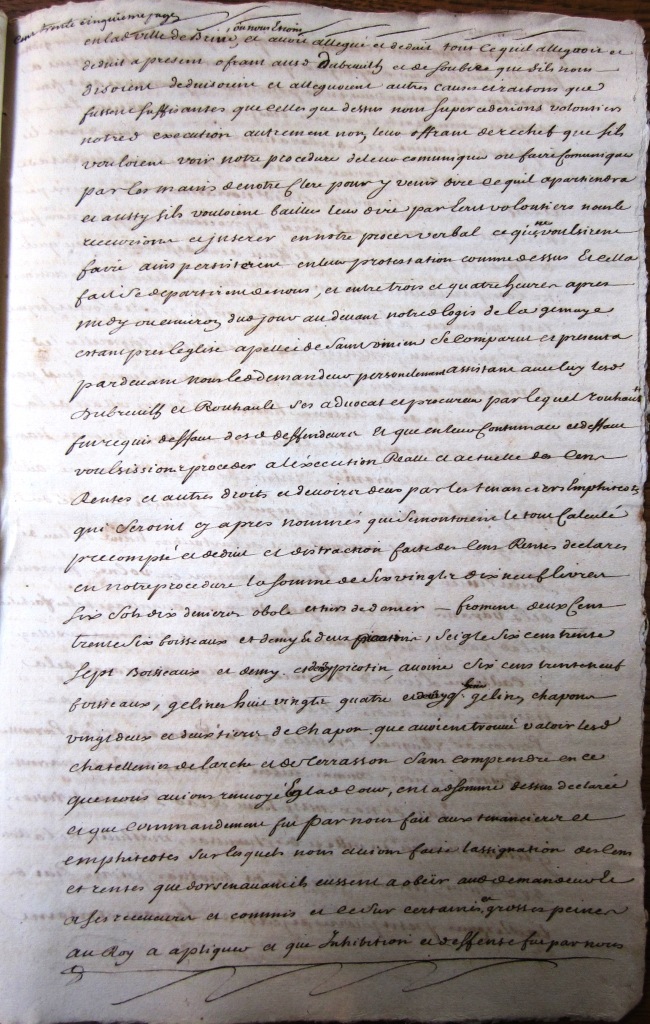 Cent trente cinquieme page
en lad ville de Brive, et avoir allegué et deduit tout ce quil allegnoit et
deduit a present ofrant aud Dubreuilh et de Soubere que sils nous
disoient deduisoient et alleguoient autres causes et raisons que
fussent suffisantes que celles que dessus nous supercederions volontiers
notred execution autrement non, leur offrant derechef que sils
vouloient voir notre procedure deleur comuniquer ou faire comuniquer
par les mains de notre clerc pour y venir dire ce quil apartiendra
et aussy sils vouloient bailler leur dire par ecrit volontiers nous le
recevrions et inserer en notre proces verbal ce quils ne voulsirent
faire ains persisterent en leur protestation comme dessus Et cella
fait se departirent de nous, et entre trois et quatre heures apres
midy ou environ dud jour au devant notred logis de la gemaye
estant pres leglise apellée de Saint se comparut et presenta
pardevant nous led demandeur personelement assistant avec luy lesd
Dubreuilh et Rouhault ses advocat et procureur par lequel rouhault
fut requis deffaut desd deffendeurs Et que en leur Contumace et deffaut
voulsissions proceder a lexecution Realle et actuelle des Cens
Rentes et autres droits et devoirs deus par les tenanciers Emphiteotes
qui seront cy apres nommés qui se montoient le tout Calculé
precompté et deduit et distraction faite des Cens Rentes declares
en notre procedure la somme de Six vingts dix neuf livres
six sols dix deniers obole et tiers de denier – froment deux Cens
trente six boisseaux et demy & deux picotins, seigle six cens trente
sept Boisseaux et demy et demy picotin, avoine Six cens trente neuf
boisseaux, gelines huit vingts quatre et demy gelines chapons
vingt deux et deux tiers de chapon que avoient trouvé valoir lesd
chatellenies de larche et de Terrasson sans comprendre en ce
que nous avions renvoyé En la de Cour, en lad somme dessus declarée
et que Commandement fut Par nous fait aux tenanciers et
emphiteotes sur lesquels nous avions faite lassignation des Cens
et rentes que dorsenavant ils eussent a obeir aud demandeur
a ses receveurs et commis et ce sur certaines et grosses peines
au Roy a apliquer et que Inhibition et deffense fut par nous